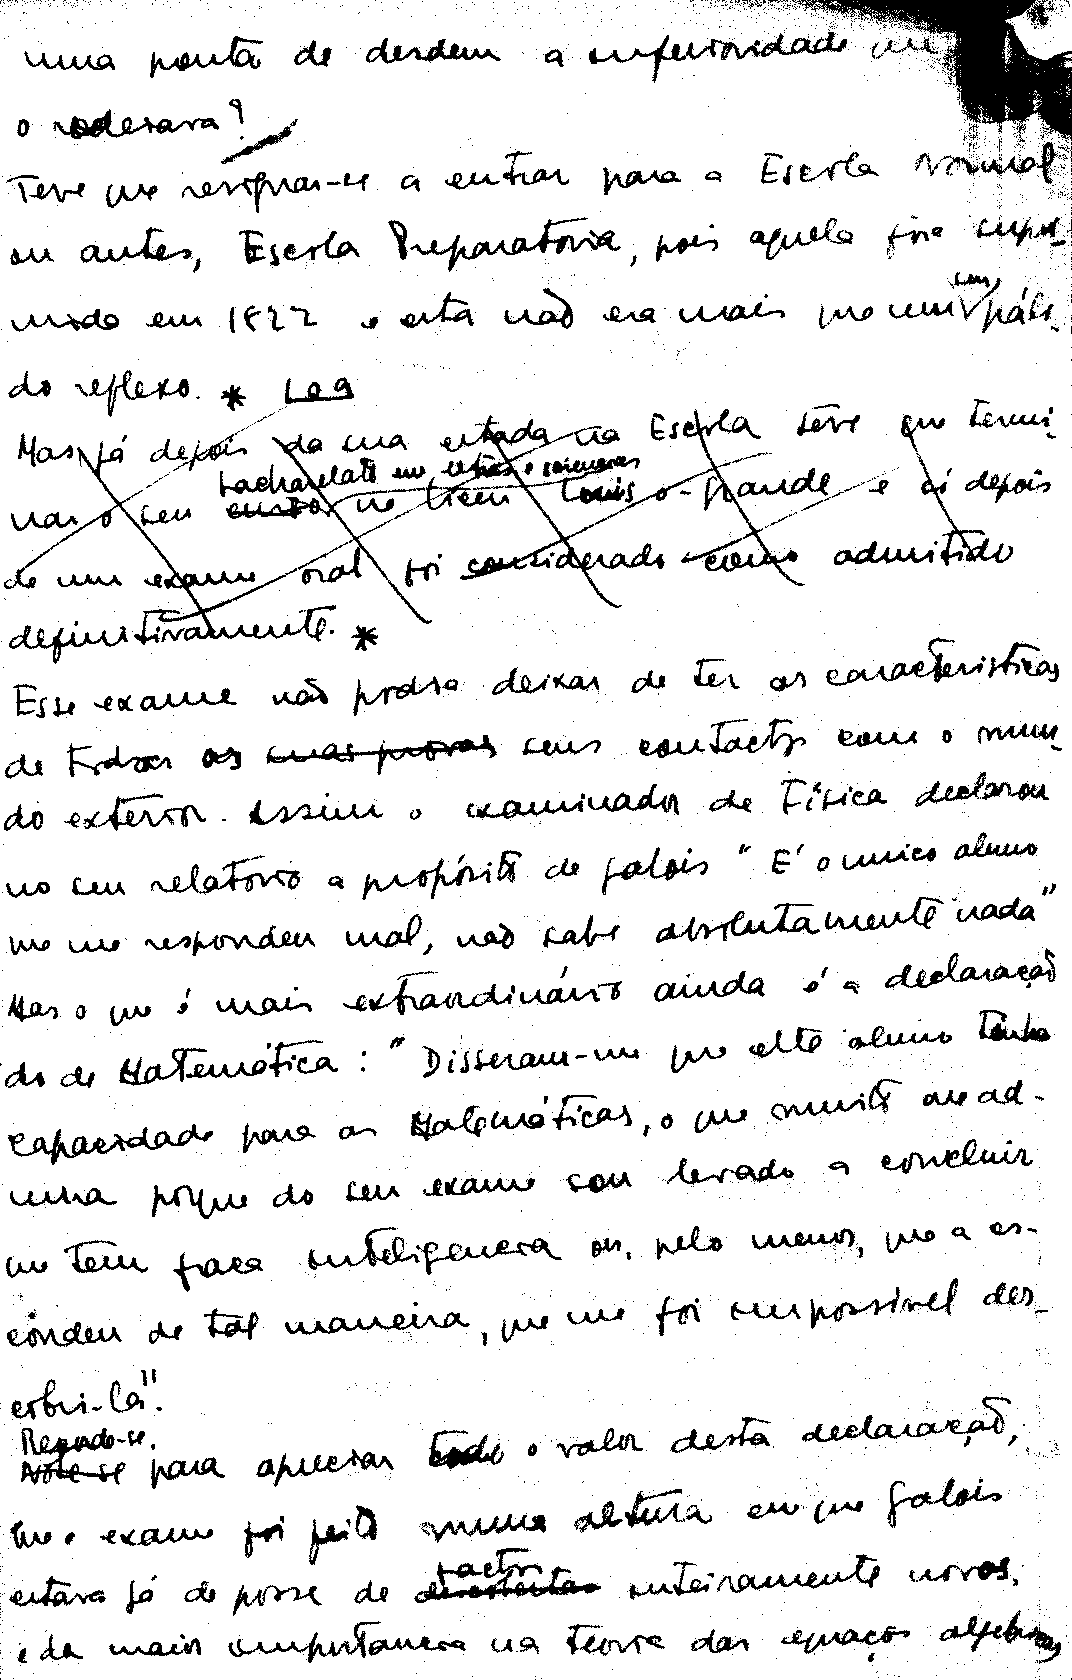 uma ponta de desdem a inferioridade que
o rodeava?
Teve que resignar-se a entrar para a Escola Normal
ou antes, Escola Preparatoria, pois aquela fora supri-
mida em 1822 e esta não era mais que um seu páli-
do reflexo. *
Mas já depois da sua entrada na Escola teve que termi-
nar o seu curso bacharelato em letras e sciencias no liceu Louis-o-grande e só depois
de um exame oral foi considerado como admitido
definitivamente. *
Esse exame não podia deixar de ter as caracteristicas
de todos os suas provas seus contactos com o mun-
do exterior. Assim o examinador de Física declarou
no seu relatorio a propósito de Galois " E' o unico aluno
que me respondeu mal, não sabe absolutamente nada"
Mas o que é mais extraordinário ainda é a declaração
do de Matemática : " Disseram-me que este aluno tinha
capacidade para as Matemáticas, o que muito me ad-
mira porque do seu exame sou levado a concluir
que tem fraca inteligencia ou, pelo menos, que a es-
condeu de tal maneira, que me foi impossivel des-
cobri-la".
Repare-se,
Note-se para apreciar todo o valor desta declaração,
que o exame foi feito numa altura em que Galois
factos
estava já de posse de descobertas inteiramente novos,
e da maior importancia na teoria das equações algebricas